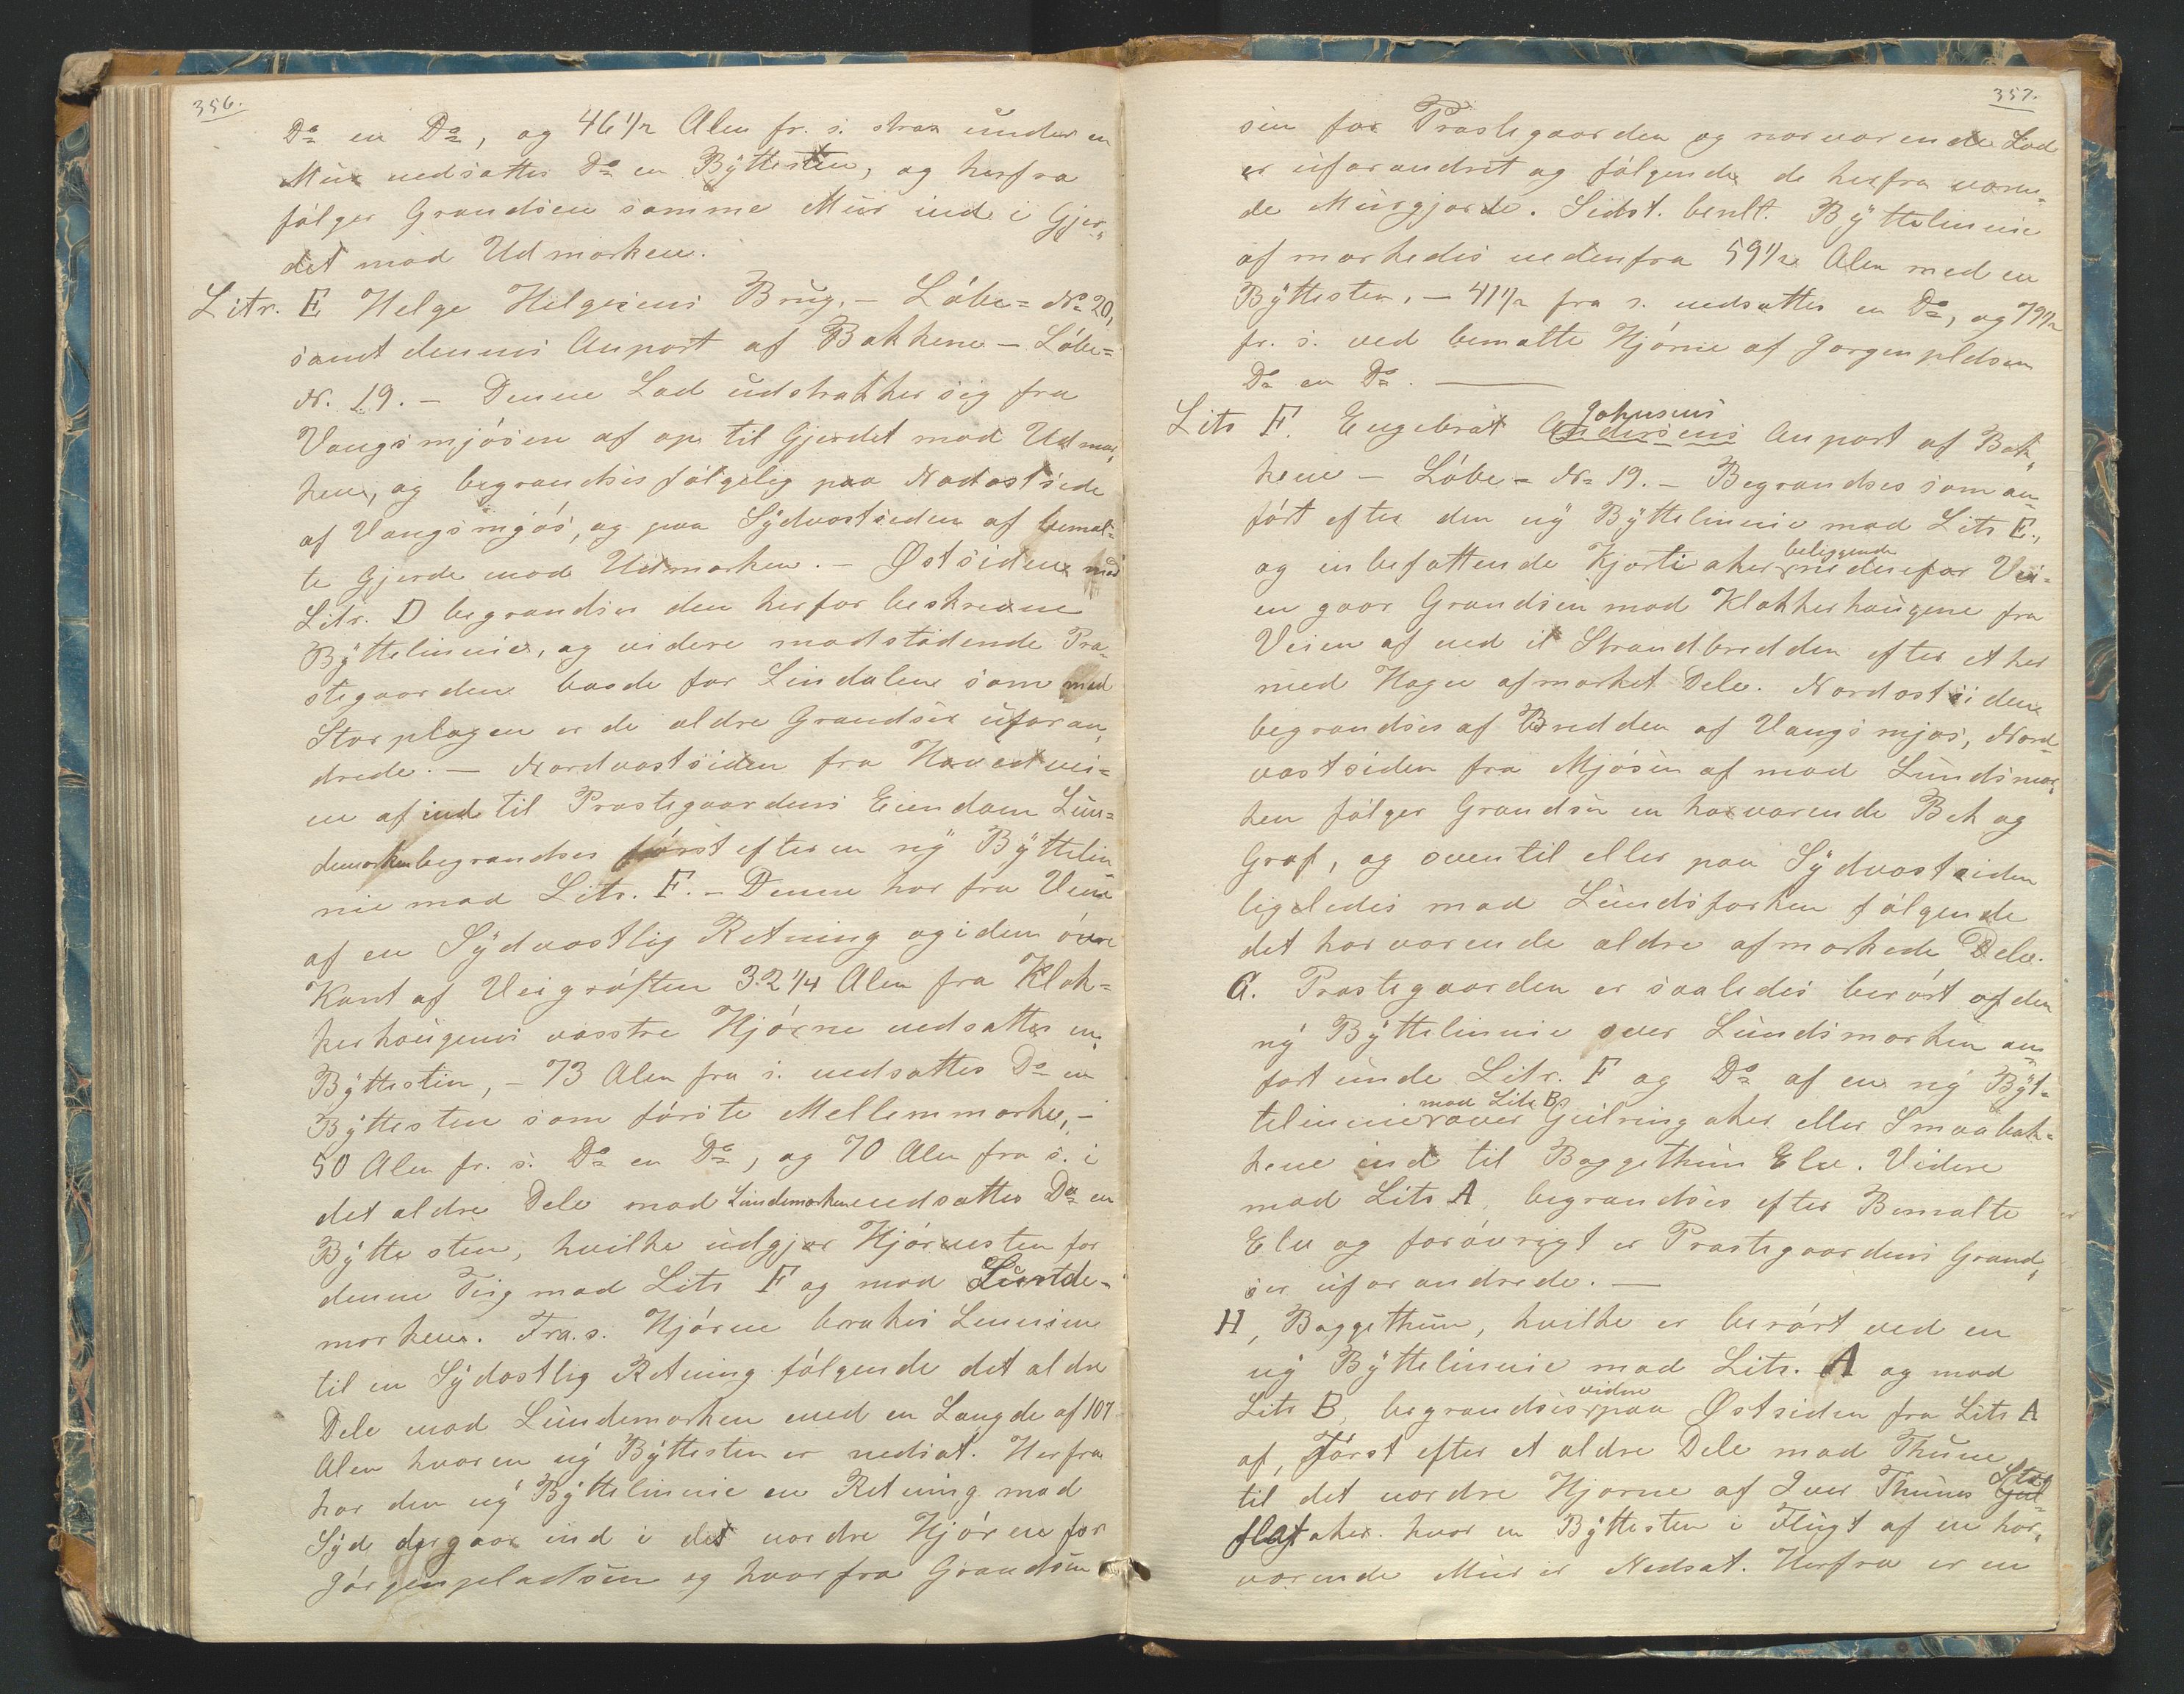 356.
Do en Do, og 46 1/2 Alen fr. s. strax under en
Mur nedsattes Do en Bÿttesten, og herfra
følger Grandsen samme Mur ind i Gjer„
det mod Udmarken.
Litr. E Helge Helgesens Brug. – Löbe = No 20,
samt dennes Anpart af Bakkene – Löbe =
N. 19. – Denne Lod udstrakker sig fra
Vangsmjösen af op til Gjerdet mod Udmar„
ken, og begrandses følgelig paa Nodostside
af Vangsmjös, og paa Sÿdvestsiden af bemel-
te Gjerde mod Udmarken. – Østsiden mod
Litr. D begrandses den herfor beskrevne
Bÿttelinnie, og videre modstödende Pra-
stegaarden baade for Lindalen som med
Storplagen er de aldre Grandser uforan„
drede. – Nordvestsiden fra Hovedvei=
en af ind til Prastegaardens Eiendom Lun=
demarken begrandses först efter en nÿ Bÿttelin
nie mod Litr. F. – Denne har fra Veien
af en Sÿdvestlig Retning og i den övre
Kant af Veigröften 32 1/4 Alen fra Klok=
kerhaugens vestre Hjörne nedsattes en
Bÿttestin, – 73 Alen fra s. nedsattes Do en
Bÿttesten som förste Mellemmarke, –
50 Alen fr. s. Do en Do, og 70 Alen fra s. i
det aldre Dele mod Lundemarken nedsattes Do en
Bÿttesten, hvilke udgjør Hjörnesten for
denne Teig mod Litr F og mod Lunde-
marken. Fra s. Hjörne brakes Linnien
til en Sÿdostlig Retning følgende det aldre
Dele mod Lundemarken med en Langde af 107
Alen hvor en nÿ Bÿttesten er nedsat. Herfra
har den nÿ Bÿttelinnie en Retning mod
Sÿd der gaar ind i det nordre Hjörne for
Jörgenpladsen og hvorfra Grandsen
357.
sen for Prastegaarden og narvarende Lod
er uforandret og følgende de herfra varen„
de Murgjarde. Sidst. bemlt. Bÿttelinnie
afmarkedes nedenfra 59 1/2 Alen med en
Bÿttesten, – 41 1/2 fra s. nedsattes en Do, og 79 1/2
fr. s. ved bemalte Hjörne af Jorgenpldsen
Do en Do. –
Johnsens
Litr F. Engebrät Andersens Anpart af Bak„
kene – Löbe = No 19. – Begrandses som an„
fört efter den nÿ Bÿttelinnie mod Litr E.,
beliggende
og inbefattende Kjortiaker nedenfor Vei-
en gaar Grandsen mod Klokkerhaugene fra
Veien af ned il Strandbredden efter et her
med Hager afmarket Dele. Nordostsiden
begrandses af Bredden af Vangsmjøs, Nord-
vestsiden fra Mjösen af mod Lundsmar„
ken følger Grandsen en harvarende Bek og
Graf, og oventil eller paa Sÿdvestsiden
ligeledes mod Lundsforken følgende
det harvarende aldre afmarkede Dele.
G. Prastegaarden er saaledes berört af den
nÿ Bÿttelinnie over Lundsmarken an„
fort unde Litr. F og Do af en nÿ Bÿt-
mod Litr B.
telinnie over Gulringaker eller Smaabak-
kene ind til Baggethun Elv. Videre
mod Litr A begrandses efter Bemalte
Elv og forövrigt er Prastegaardens Grand„
ser uforandrede. –
H, Baggethun, hvilke er berört ved en
nÿ Bÿttelinnie mod Litr. A og mod
vidre
Litr B, begrandses paa Østsiden fra Litr A
af, först efter et aldre Dele mod Thune
til det nordre Hjorne af Iver Thunes Gul- Stor
flataker hvor en Bÿttesten i Flugt af en har„
varende Mur er Nedsat. Herfra er en